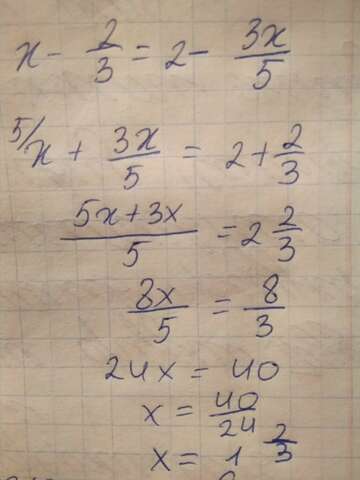 x - 2/3 = 2 - 3x/5
5/ x + 3x/5 = 2 + 2/3
5x+3x/5 = 2 2/3
8x/5 = 8/3
24x = 40
x = 40/24
x = 1 2/3